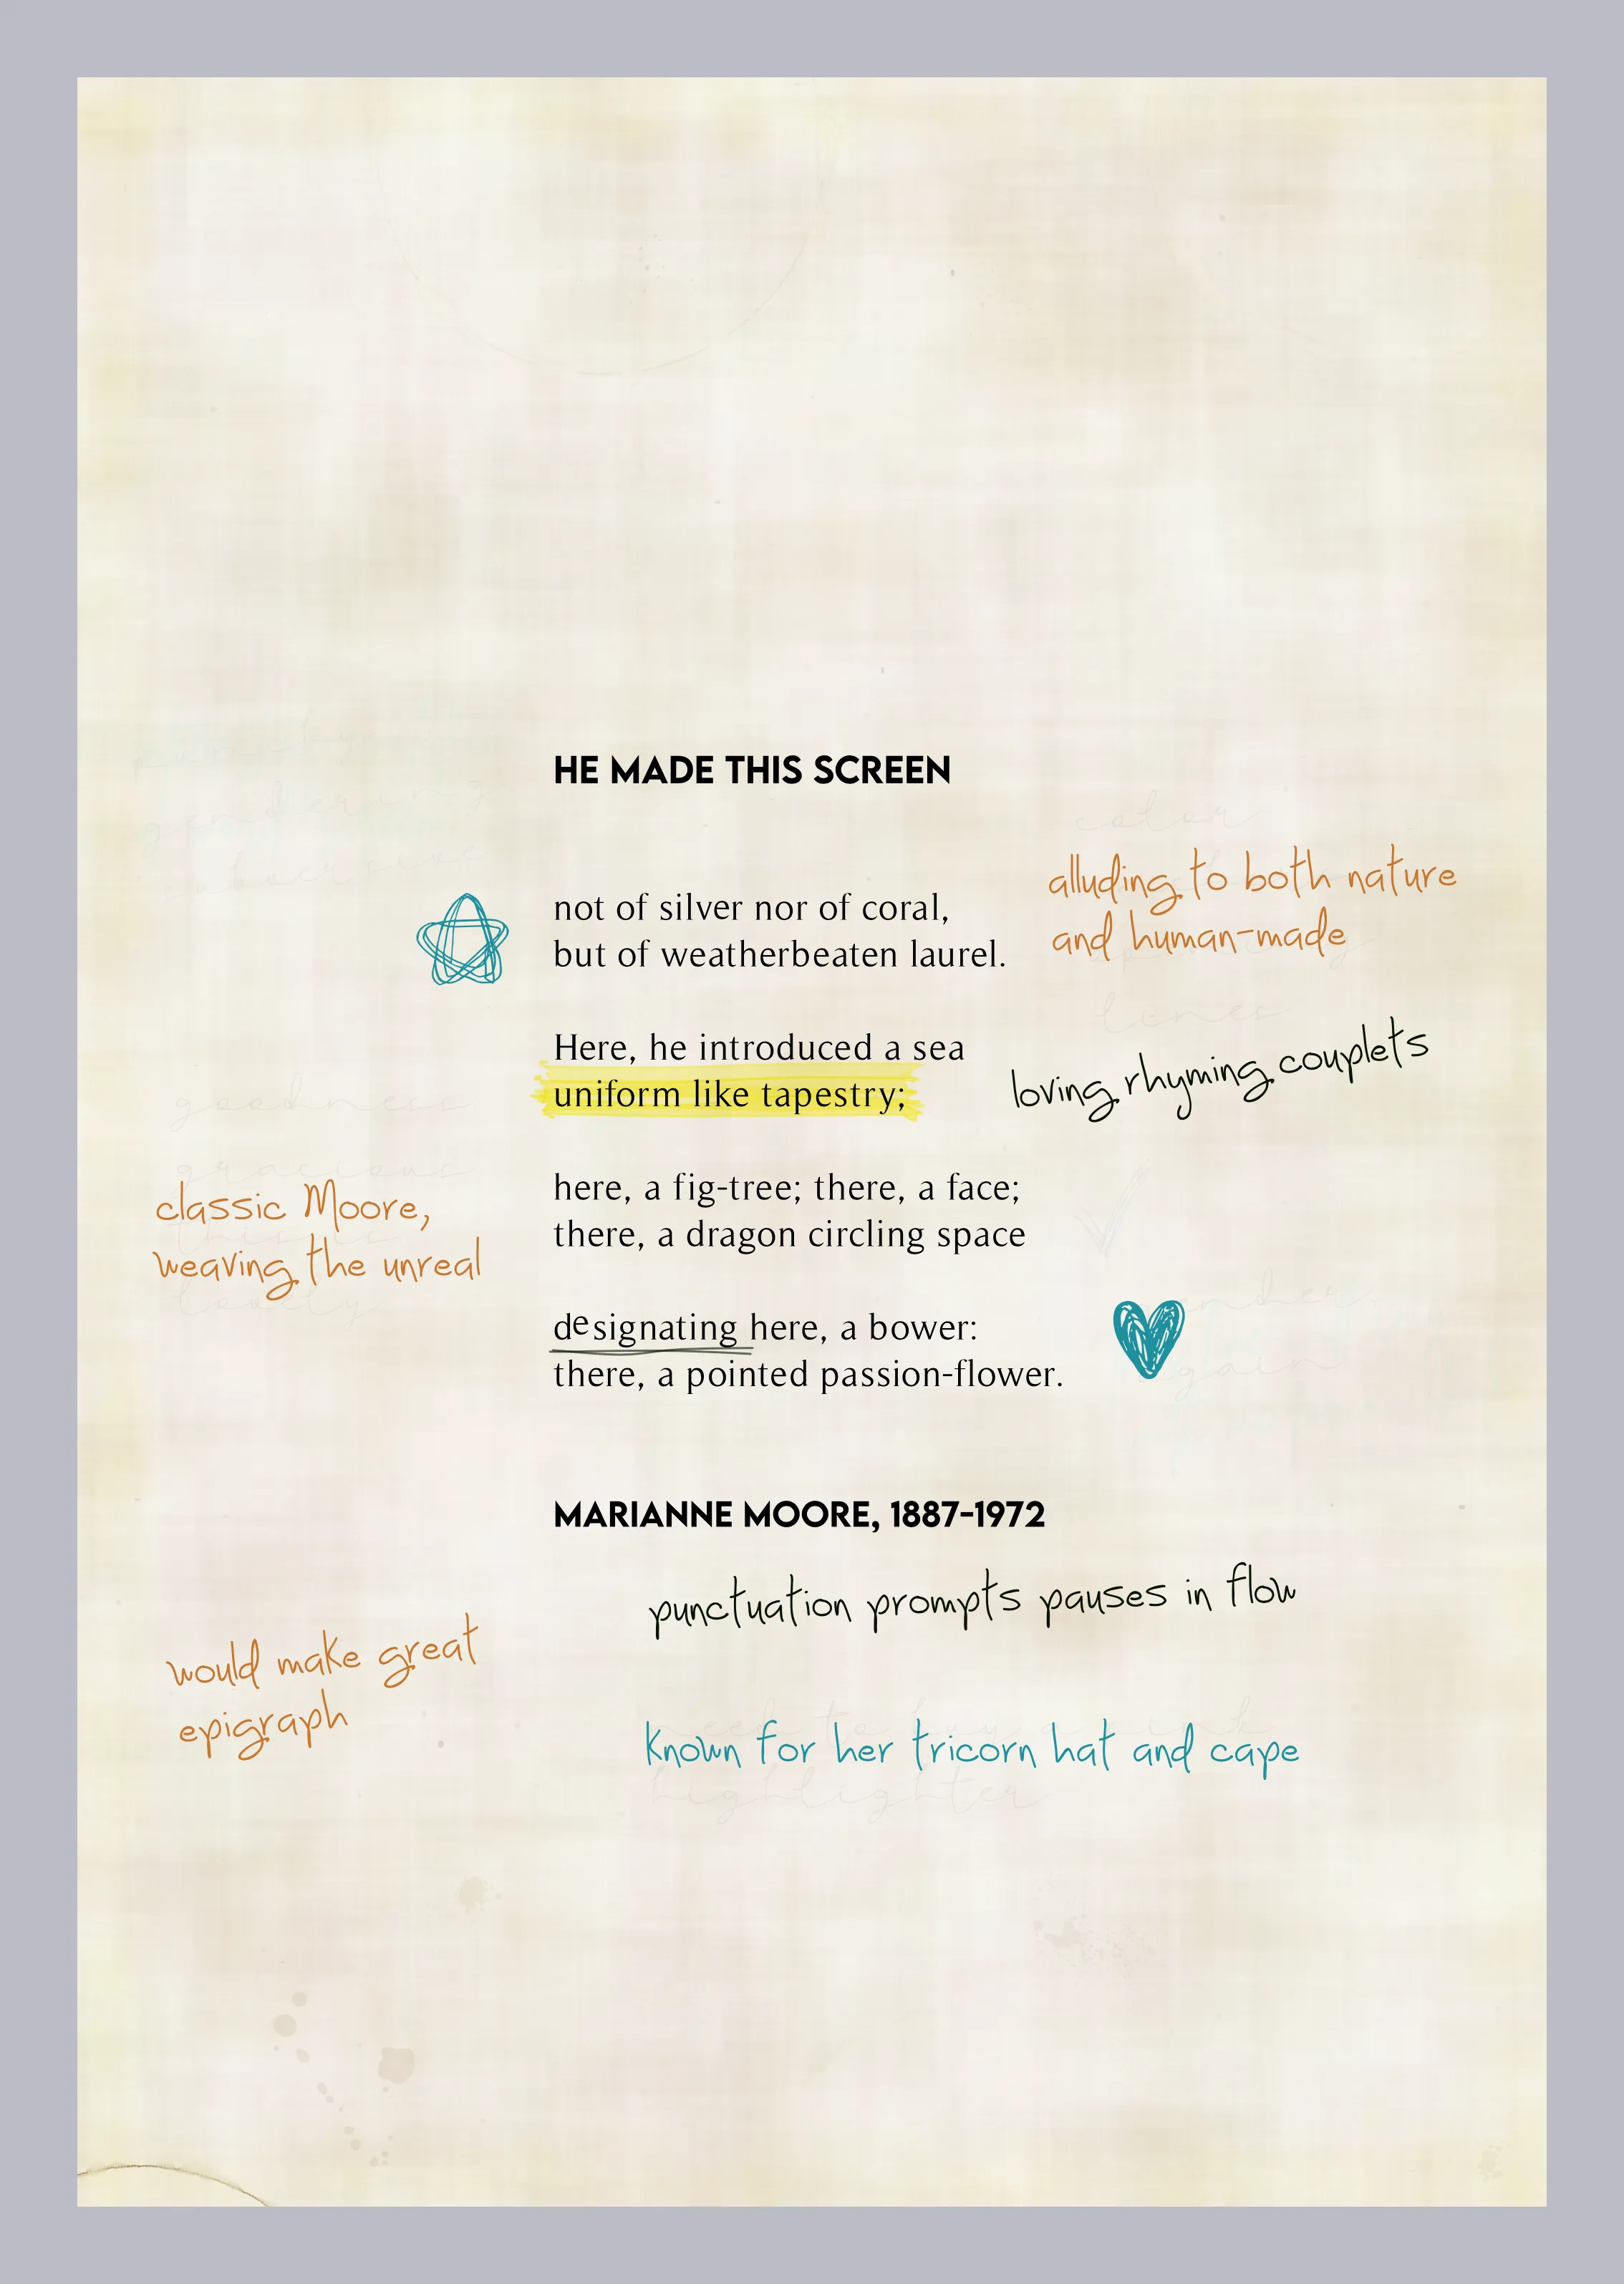 HE MADE THIS SCREEN
not of silver nor of coral,
but of weatherbeaten laurel.
alluding to both nature
and human-made
Here, he introduced a sea
uniform like tapestry;
loving rhyming couplets
here, a fig-tree; there, a face;
there, a dragon circling space
classic Moore,
weaving the unreal
designating here, a bower:
there, a pointed passion-flower.
MARIANNE MOORE, 1887-1972
punctuation prompts pauses in flow
would make great
epigraph
known for her tricorn hat and cape
color
lines
goodness
gracious
lovely
again
highlighter